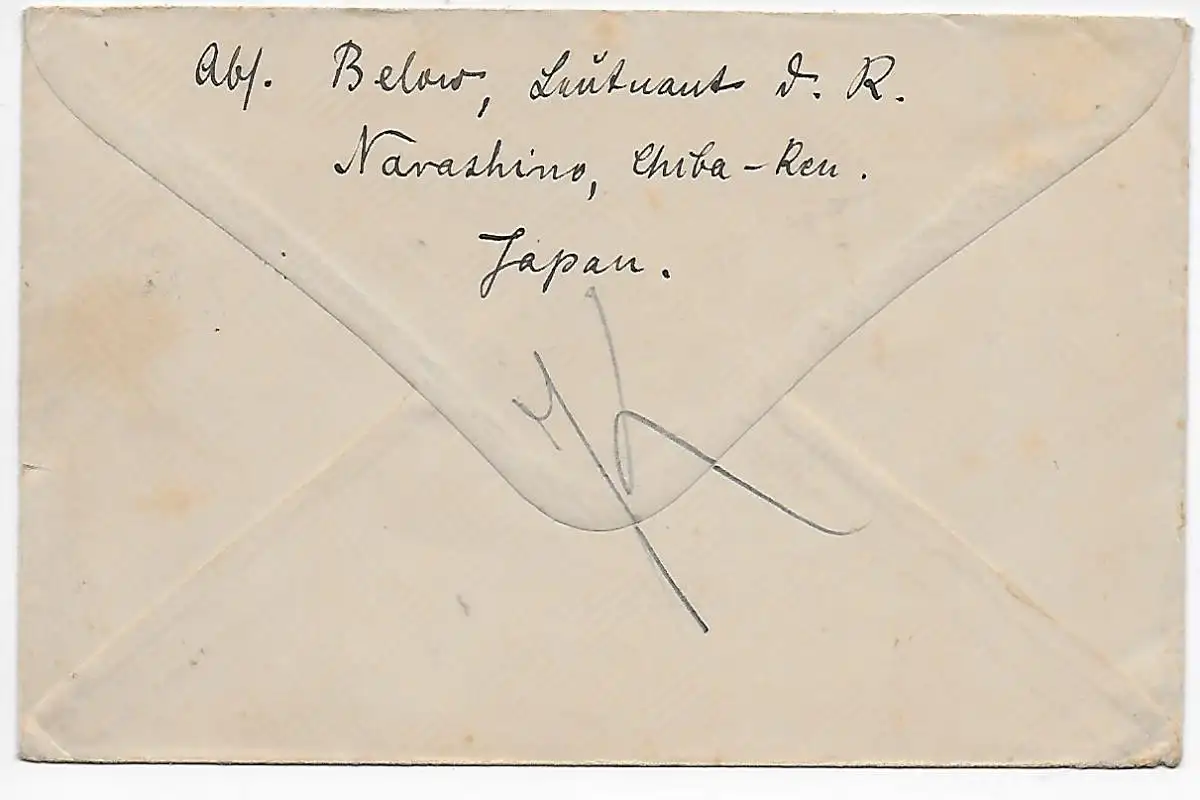 Abs. Below, Leutnant d. R.
Narashino, Chiba-Ken.
Japan.